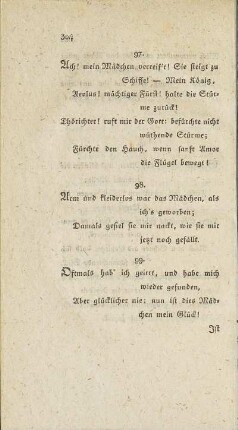 304
97.
Ach! mein Mädchen verreist! Sie steigt zu
Schiffe! — Mein König,
Aeolus! mächtiger Fürst! halte die Stür-
me zurück!
Thörichter! ruft mir der Gott: befürchte nicht
wüthende Stürme;
Fürchte den Hauch, wenn sanft Amor
die Flügel bewegt!
98.
Arm und kleiderlos war das Mädchen, als
ich's geworben;
Damals gefiel sie mir nackt, wie sie mir
jetzt noch gefällt.
99.
Oftmals hab' ich geirrt, und habe mich
wieder gefunden,
Aber glücklicher nie; nun ist dies Mäd-
chen mein Glück!
Ist